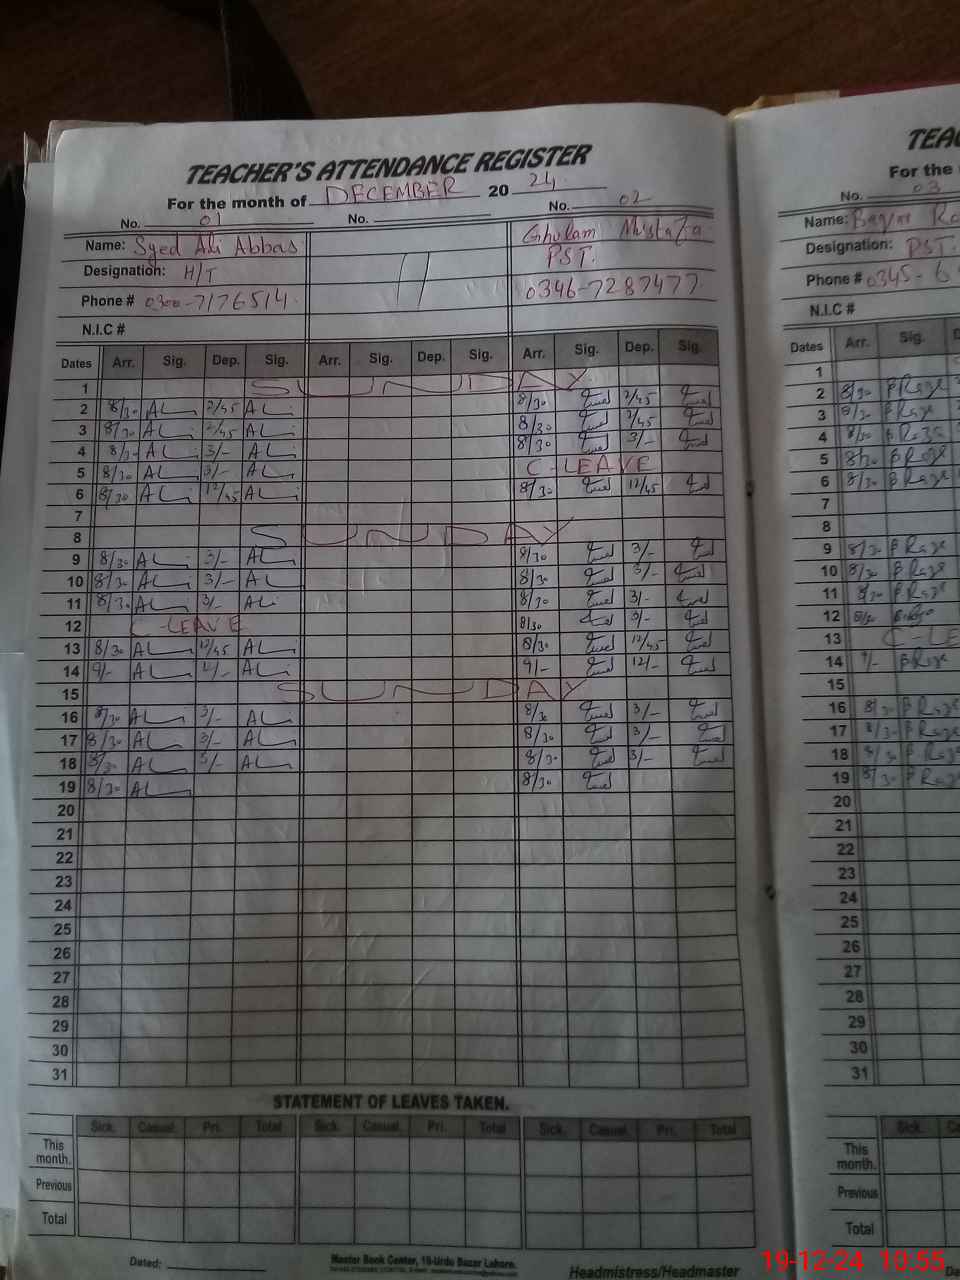 TEACHER'S ATTENDANCE REGISTER
For the month of DECEMBER 20 24
No. 01 No. No. 02
Name: Syed Ali Abbas Ghulam Mustafa
Designation: H/T PST.
Phone # 0300-7176514 0346-7287477
N.I.C #
Dates Arr. Sig. Dep. Sig. Arr. Sig. Dep. Sig. Arr. Sig. Dep. Sig.
1 SUNDAY
2 8/30 AL 2/45 AL 8/30 2/45
3 8/30 AL 2/45 AL 8/30 2/45
4 8/30 AL 3/- AL 8/30 3/-
5 8/30 AL 3/- AL C-LEAVE
6 8/30 AL 12/45 AL 8/30 12/45
7
8 SUNDAY
9 8/30 AL 3/- AL 8/30 3/-
10 8/30 AL 3/- AL 8/30 3/-
11 8/30 AL 3/- ALi 8/30 3/-
12 C-LEAVE 8/30 3/-
13 8/30 AL 12/45 AL 8/30 12/45
14 9/- AL 12/- AL 9/- 12/-
15 SUNDAY
16 8/30 AL 3/- AL 8/30 3/-
17 8/30 AL 3/- AL 8/30 3/-
18 8/30 AL 3/- AL 8/30 3/-
19 8/30 AL 8/30
20
21
22
23
24
25
26
27
28
29
30
31
STATEMENT OF LEAVES TAKEN.
Sick. Casual. Pri. Total Sick. Casual. Pri. Total Sick. Casual. Pri. Total
This month.
Previous
Total
Dated:
Master Book Center, 19-Urdu Bazar Lahore.
Headmistress/Headmaster
TEAC
For the
No. 03
Name:
Designation: PST.
Phone # 0345-6
N.I.C #
Dates Arr. Sig.
1
2 8/30 B Raza
3 8/30 B Raza
4 8/30 B Raza
5 8/30 B Raza
6 8/30 B Raza
7
8
9 8/30 B Raza
10 8/30 B Raza
11 8/30 B Raza
12 8/30
13 C-LE
14 9/- B Raza
15
16 8/30 B Raza
17 8/30 B Raza
18 8/30 B Raza
19 8/30 B Raza
20
21
22
23
24
25
26
27
28
29
30
31
Sick. Ca
This month.
Previous
Total
19-12-24 10:55